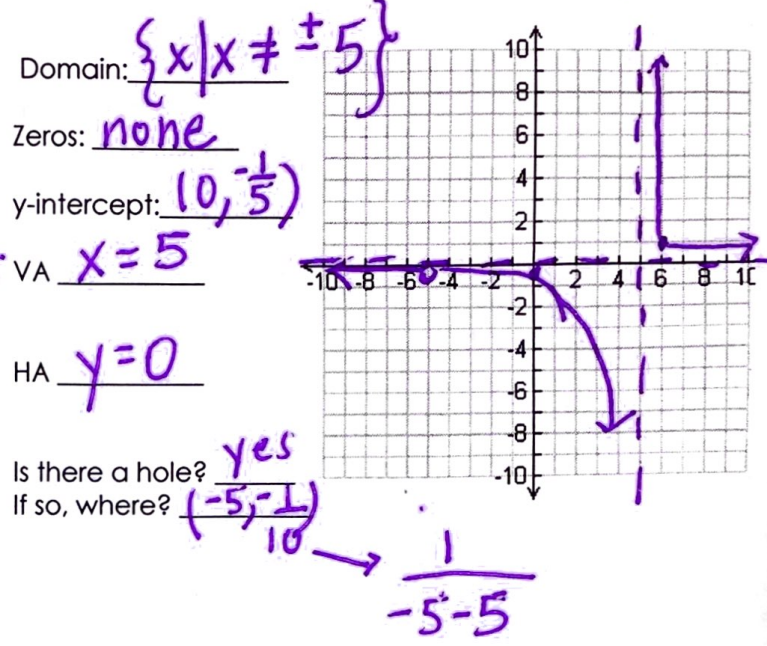 Domain: {x|x ≠ ± 5}
Zeros: none
y-intercept: (0, -1/5)
VA x = 5
HA y = 0
Is there a hole? yes
If so, where? (-5, -1/10) → 1/(-5-5)
10
8
6
4
2
-10 -8 -6 -4 -2 2 4 6 8 10
-2
-4
-6
-8
-10